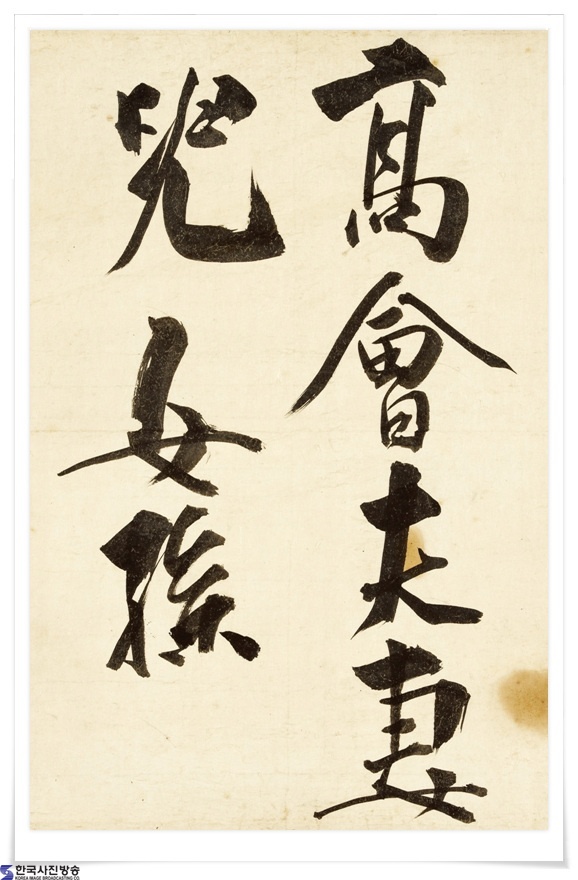 高會夫妻
兒女孫
한국사진방송
KOREA IMAGE BROADCASTING CO.